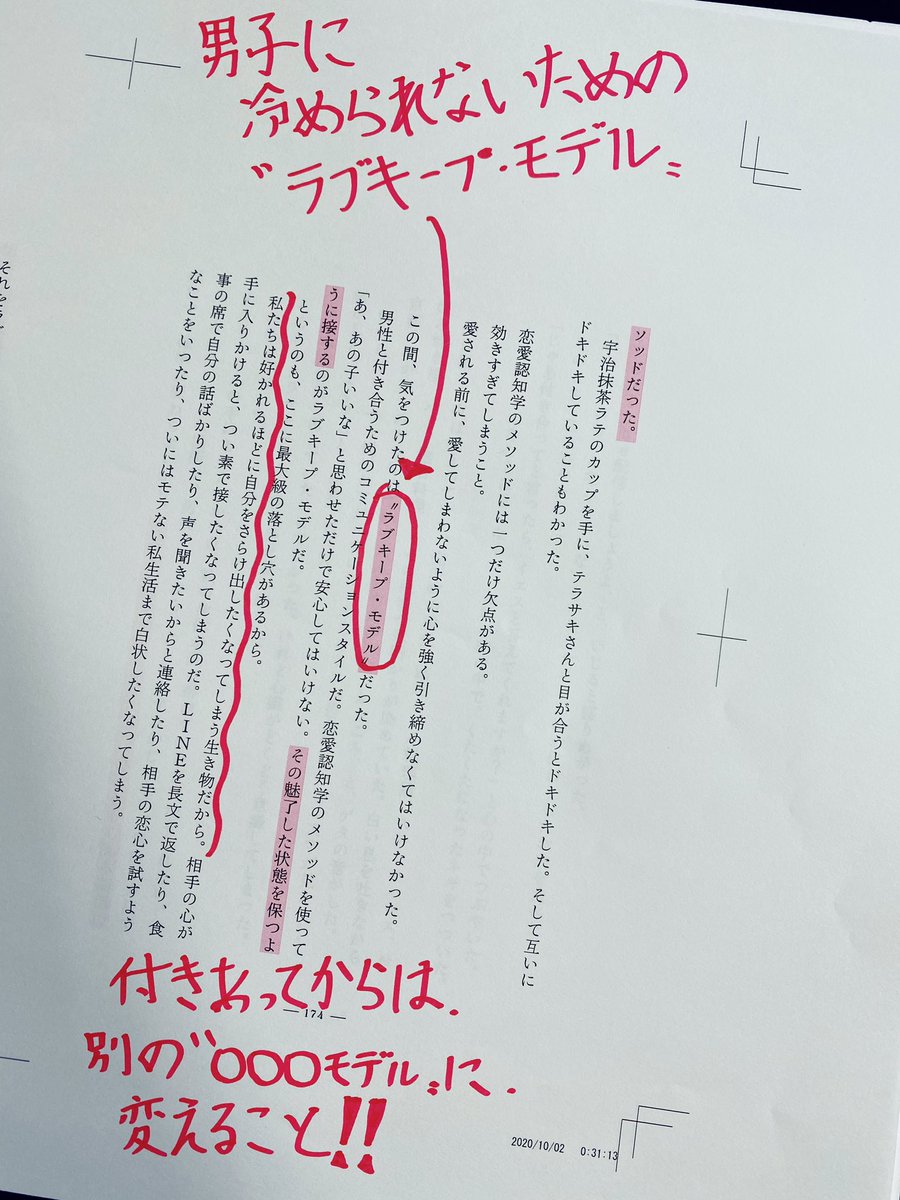 男子に
冷められないための
〝ラブキープ・モデル〟
ソッドだった。
宇治抹茶ラテのカップを手に、テラサキさんと目が合うとドキドキした。そして互いに
ドキドキしていることもわかった。
恋愛認知学のメソッドには一つだけ欠点がある。
効きすぎてしまうこと。
愛される前に、愛してしまわないように心を強く引き締めなくてはいけなかった。
この間、気をつけたのは〝ラブキープ・モデル〟だった。
男性と付き合うためのコミュニケーションスタイルだ。恋愛認知学のメソッドを使って
「あ、あの子いいな」と思わせただけで安心してはいけない。その魅了した状態を保つよ
うに接するのがラブキープ・モデルだ。
というのも、ここに最大級の落とし穴があるから。
私たちは好かれるほどに自分をさらけ出したくなってしまう生き物だから。相手の心が
手に入りかけると、つい素で接したくなってしまうのだ。LINEを長文で返したり、食
事の席で自分の話ばかりしたり、声を聞きたいからと連絡したり、相手の恋心を試すよう
なことをいったり、ついにはモテない私生活まで白状したくなってしまう。
それを
— 174 —
付きあってからは、
別の〝○○○モデル〟に、
変えること!!
2020/10/02 0:31:13